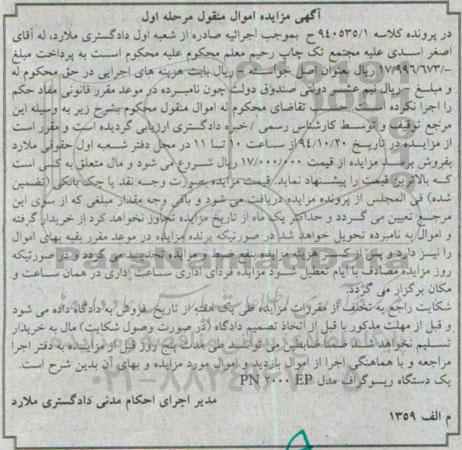 آگهی مزایده اموال منقول مرحله اول
در پرونده کلاسه ۹۴۰۵۳۵/۱ ح بموجب اجرائیه صادره از شعبه اول دادگستری ملارد، له آقای
اصغر اسدی علیه مجتمع تک چاپ رحیم معلم محکوم علیه محکوم است به پرداخت مبلغ
۱۷/۹۹۶/۶۷۳/- ریال بعنوان اصل خواسته - ریال بابت هزینه های اجرایی در حق محکوم له
و مبلغ - ریال نیم عشر دولتی صندوق دولت چون نامبرده در موعد مقرر قانونی مفاد حکم
را اجرا نکرده تقاضای محکوم له اموال منقول محکوم بشرح زیر به وسیله این
مرجع توقیف و توسط کارشناس رسمی / خبره دادگستری ارزیابی گردیده است و مقرر است
از مزایده در تاریخ ۹۴/۱۰/۲۰ از ساعت ۱۰ تا ۱۱ در محل دفتر شعبه اول حقوقی ملارد
بفروش برسد مزایده از قیمت ۱۷/۰۰۰/۰۰۰ ریال شروع می شود و مال متعلق به کسی است
که بالاترین قیمت را پیشنهاد نماید. قیمت مزایده بصورت وجه نقد یا چک بانکی (تضمین
شده) فی المجلس از برنده مزایده دریافت می شود و باقی وجه مقدار مبلغی که از سوی این
مرجع تعیین می گردد و حداکثر یک ماه از تاریخ مزایده تجاوز نخواهد کرد از خریدار گرفته
و اموال به نامبرده تحویل خواهد شد در صورتیکه برنده مزایده در موعد مقرر بقیه بهای اموال
را نپردازد پس از کسر هزینه مزایده تجدید می گردد در صورتیکه
روز مزایده مصادف با ایام تعطیل شود مزایده فردای اداری ساعت اداری در همان ساعت و
مکان برگزار می گردد.
شکایت راجع به تخلف از مقررات مزایده ظرف یک هفته از تاریخ فروش به دادگاه داده می شود
و قبل از مهلت مذکور یا قبل از اتخاذ تصمیم دادگاه (در صورت وصول شکایت) مال به خریدار
تسلیم نخواهد شد. ضمنا طالبین می توانند ظرف مدت پنج روز قبل از مزایده به دفتر اجرا
مراجعه و با هماهنگی اجرا از اموال بازدید و اموال مورد مزایده و بهای آن بدین شرح است.
یک دستگاه ریسوگراف مدل PN ۲۰۰۰ EP
مدیر اجرای احکام مدنی دادگستری ملارد
م الف ۱۳۵۹